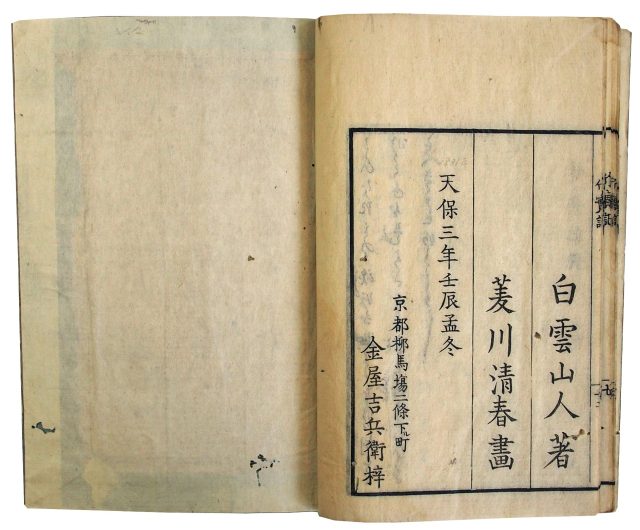 白雲山人著
菱川清春畫
天保三年壬辰孟冬
京都柳馬塲二條下ル町
金屋吉兵衛梓